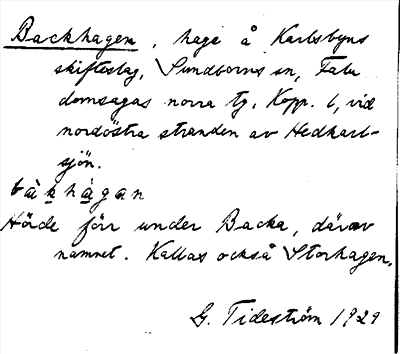 Backhagen, hage å Karlsbyns
skifteslag, Sundborns sn, Falu
domsagas norra tg, Kopp. l, vid
nordöstra stranden av Hedkarl-
sjön.
bàkhàgan
Hörde förr under Backa, därav
namnet. Kallas också Storhagen.
G. Tideström 1929